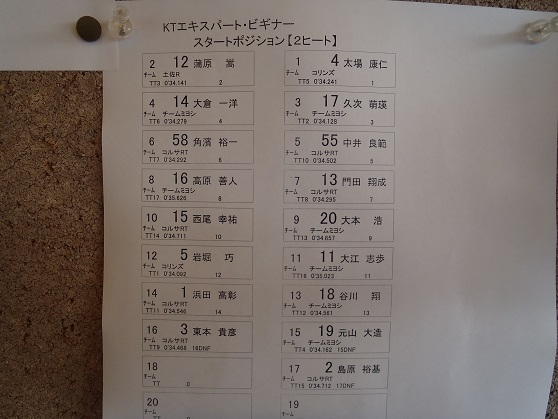 KTエキスパート・ビギナー
スタートポジション【2ヒート】
2 12 蒲原 嵩
チーム 土佐R
TT3 0'34.141 2
1 4 太場 康仁
チーム コリンズ
TT5 0'34.241 1
4 14 大倉 一洋
チーム チームミヨシ
TT6 0'34.279 4
3 17 久次 萌瑛
チーム チームミヨシ
TT2 0'34.128 3
6 58 角濱 裕一
チーム コルサRT
TT7 0'34.292 6
5 55 中井 良範
チーム コルサRT
TT10 0'34.502 5
8 16 高原 善人
チーム チームミヨシ
TT17 0'35.626 8
7 13 門田 翔成
チーム チームミヨシ
TT8 0'34.295 7
10 15 西尾 幸祐
チーム コルサRT
TT14 0'34.711 10
9 20 大本 浩
チーム チームミヨシ
TT13 0'34.657 9
12 5 岩堀 巧
チーム コリンズ
TT1 0'34.092 12
11 11 大江 志歩
チーム チームミヨシ
TT16 0'35.023 11
14 1 浜田 高彰
チーム コルサRT
TT11 0'34.546 14
13 18 谷川 翔
チーム チームミヨシ
TT12 0'34.561 13
16 3 東本 貴彦
チーム コルサRT
TT9 0'34.468 16DNF
15 19 元山 大造
チーム チームミヨシ
TT4 0'34.162 15DNF
18
チーム
TT 0
17 2 島原 裕基
チーム コルサRT
TT15 0'34.712 17DNF
20
チーム
19